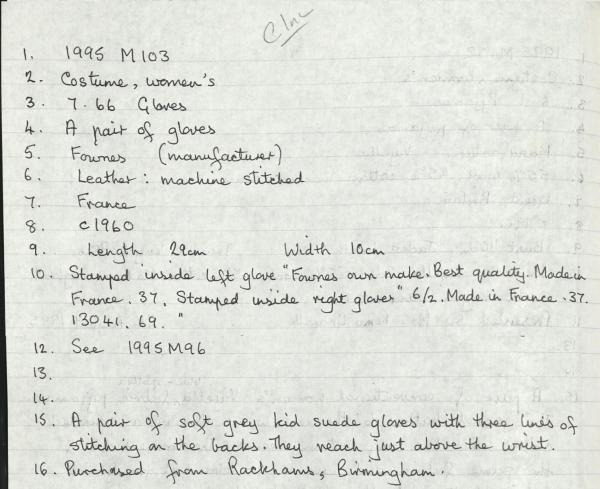 CInc
1. 1995 M103
2. Costume, women's
3. 7.66 Gloves
4. A pair of gloves
5. Fownes (manufacturer)
6. Leather: machine stitched
7. France
8. c1960
9. Length 29cm Width 10cm
10. Stamped inside left glove "Fownes own make. Best quality. Made in
France. 37. Stamped inside right gloves" 6/2. Made in France. 37.
13041. 69. "
12. See 1995M96
13.
14.
15. A pair of soft grey kid suede gloves with three lines of
stitching on the backs. They reach just above the wrist.
16. Purchased from Rackhams, Birmingham.